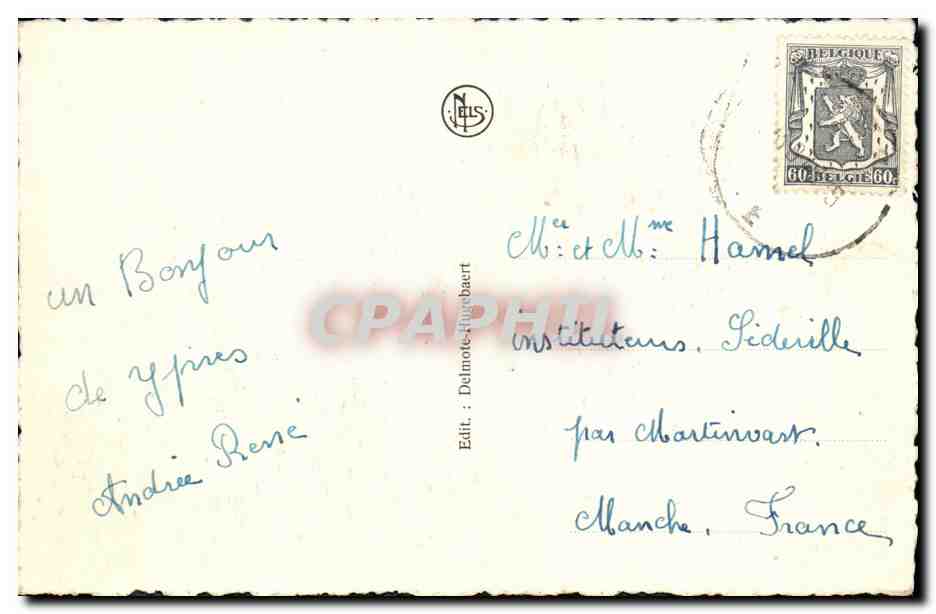 BELGIQUE
60c BELGIË 60c
NELS
un Bonjour
de Ypres
Andrée René
Edit. : Delmote-Hugebaert
CPAPHIL
Mr et Mme Hamel
instituteurs. Sideville
par Martinvast.
Manche. France